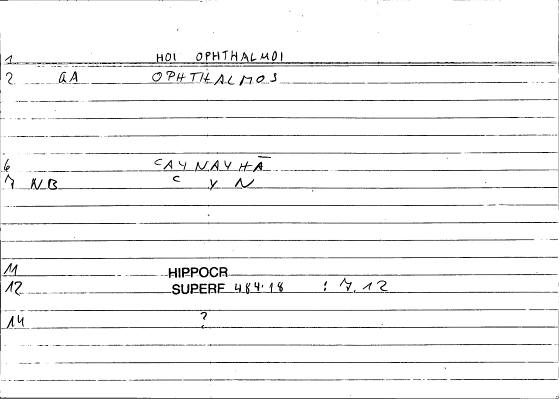 1 HOI OPHTHALMOI
2 GA OPHTHALMOS
6 CAYNAYHĀ
7 NB C Y N
11 HIPPOCR
12 SUPERF 484.18 : 7.12
14 ?